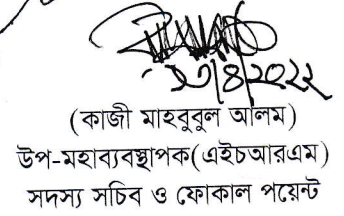 ২৩/৪/২০২২
(কাজী মাহবুবুল আলম)
উপ-মহাব্যবস্থাপক(এইচআরএম)
সদস্য সচিব ও ফোকাল পয়েন্ট